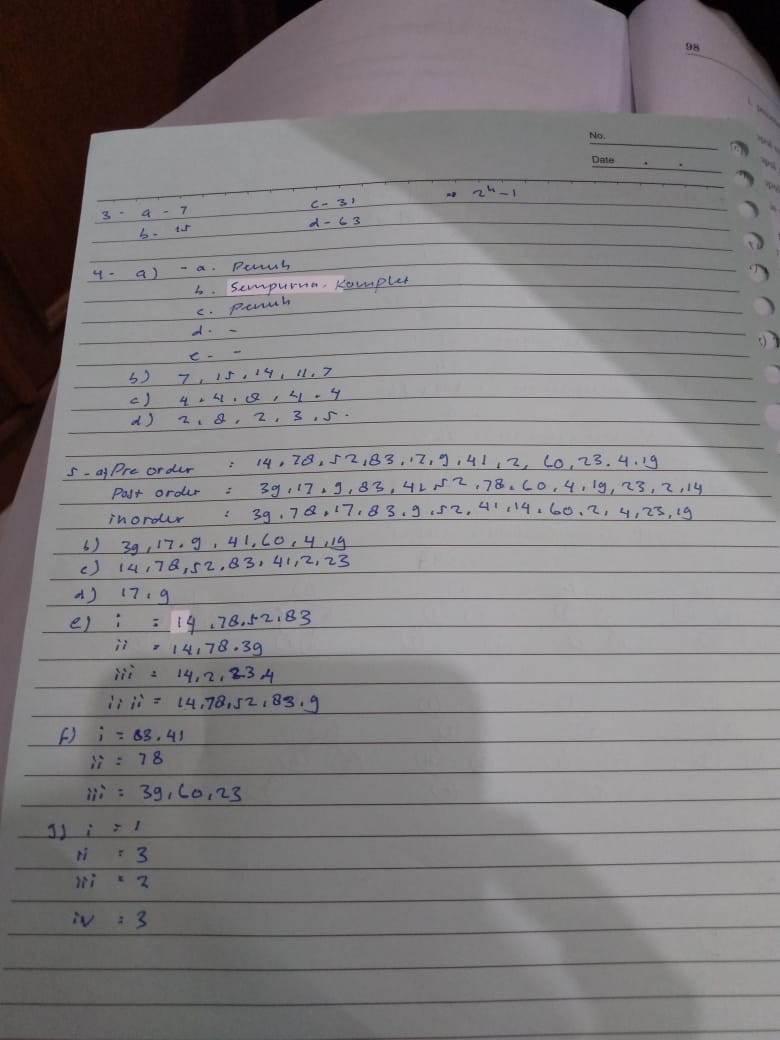 98
No.
Date . .
3 - a - 7 c - 31 => 2^h - 1
b - 15 d - 63
4 - a) - a. Penuh
b. Sempurna, Komplet
c. Penuh
d. -
e. -
b) 7, 15, 14, 11, 7
c) 4, 4, 8, 4, 4
d) 2, 8, 2, 3, 5.
5 - a) Pre order : 14, 78, 52, 83, 17, 9, 41, 2, 60, 23, 4, 19
Post order : 39, 17, 9, 83, 41, 52, 78, 60, 4, 19, 23, 2, 14
inorder : 39, 78, 17, 83, 9, 52, 41, 14, 60, 2, 4, 23, 19
b) 39, 17, 9, 41, 60, 4, 19
c) 14, 78, 52, 83, 41, 2, 23
d) 17, 9
e) i = 14, 78, 52, 83
ii = 14, 78, 39
iii = 14, 2, 23 4
iiii = 14, 78, 52, 83, 9
f) i = 83, 41
ii = 78
iii = 39, 60, 23
g) i = 1
ii = 3
iii = 2
iv = 3